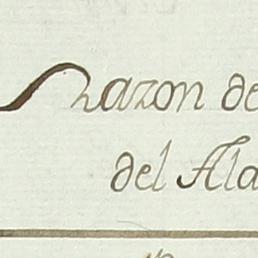 Razon de
del Ala